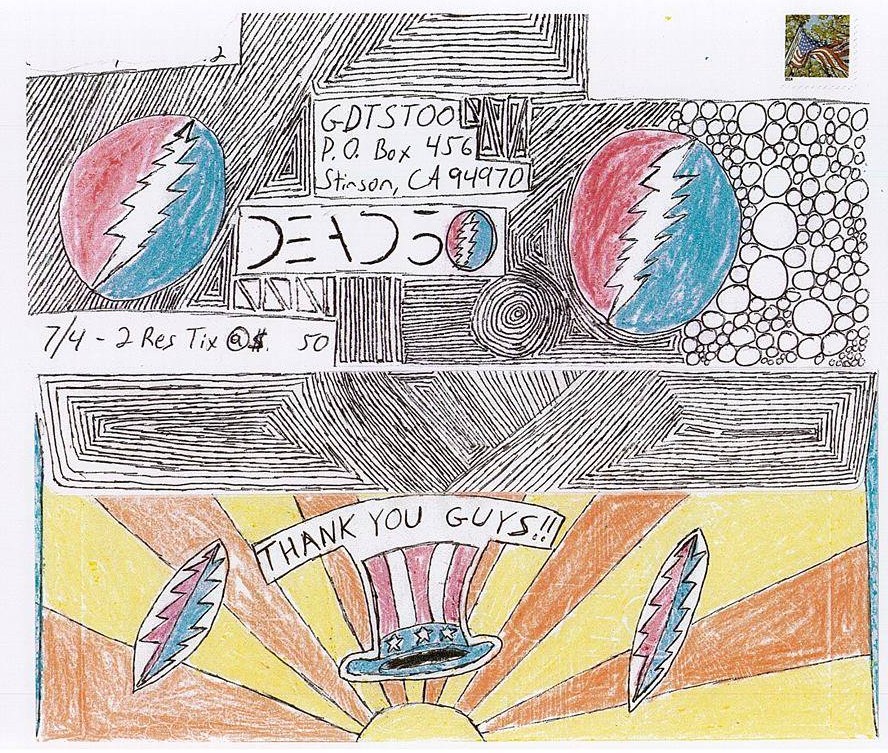 2
GDTSTOO
P.O. Box 456
Stinson, CA 94970
DEAD50
7/4 - 2 Res Tix @ $. 50
THANK YOU GUYS!!